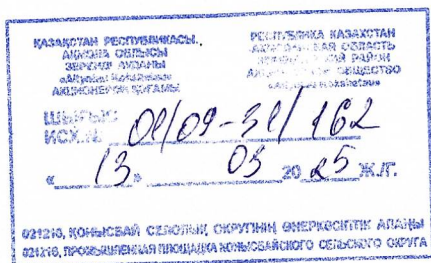 ҚАЗАҚСТАН РЕСПУБЛИКАСЫ,
АҚМОЛА ОБЛЫСЫ
ЗЕРЕНДІ АУДАНЫ
АКЦИОНЕРЛІК ҚОҒАМЫ
РЕСПУБЛИКА КАЗАХСТАН
АКМОЛИНСКАЯ ОБЛАСТЬ
ЗЕРЕНДИНСКИЙ РАЙОН
АКЦИОНЕРНОЕ ОБЩЕСТВО
ШЫҒЫС
ИСХ.№ 01/09-31/162
«13» 05 2025 Ж./Г.
021210, ҚОНЫСБАЙ СЕЛОЛЫҚ ОКРУГІНІҢ ӨНЕРКӘСІПТІК АЛАҢЫ
021210, ПРОМЫШЛЕННАЯ ПЛОЩАДКА КОНЫСБАЙСКОГО СЕЛЬСКОГО ОКРУГА